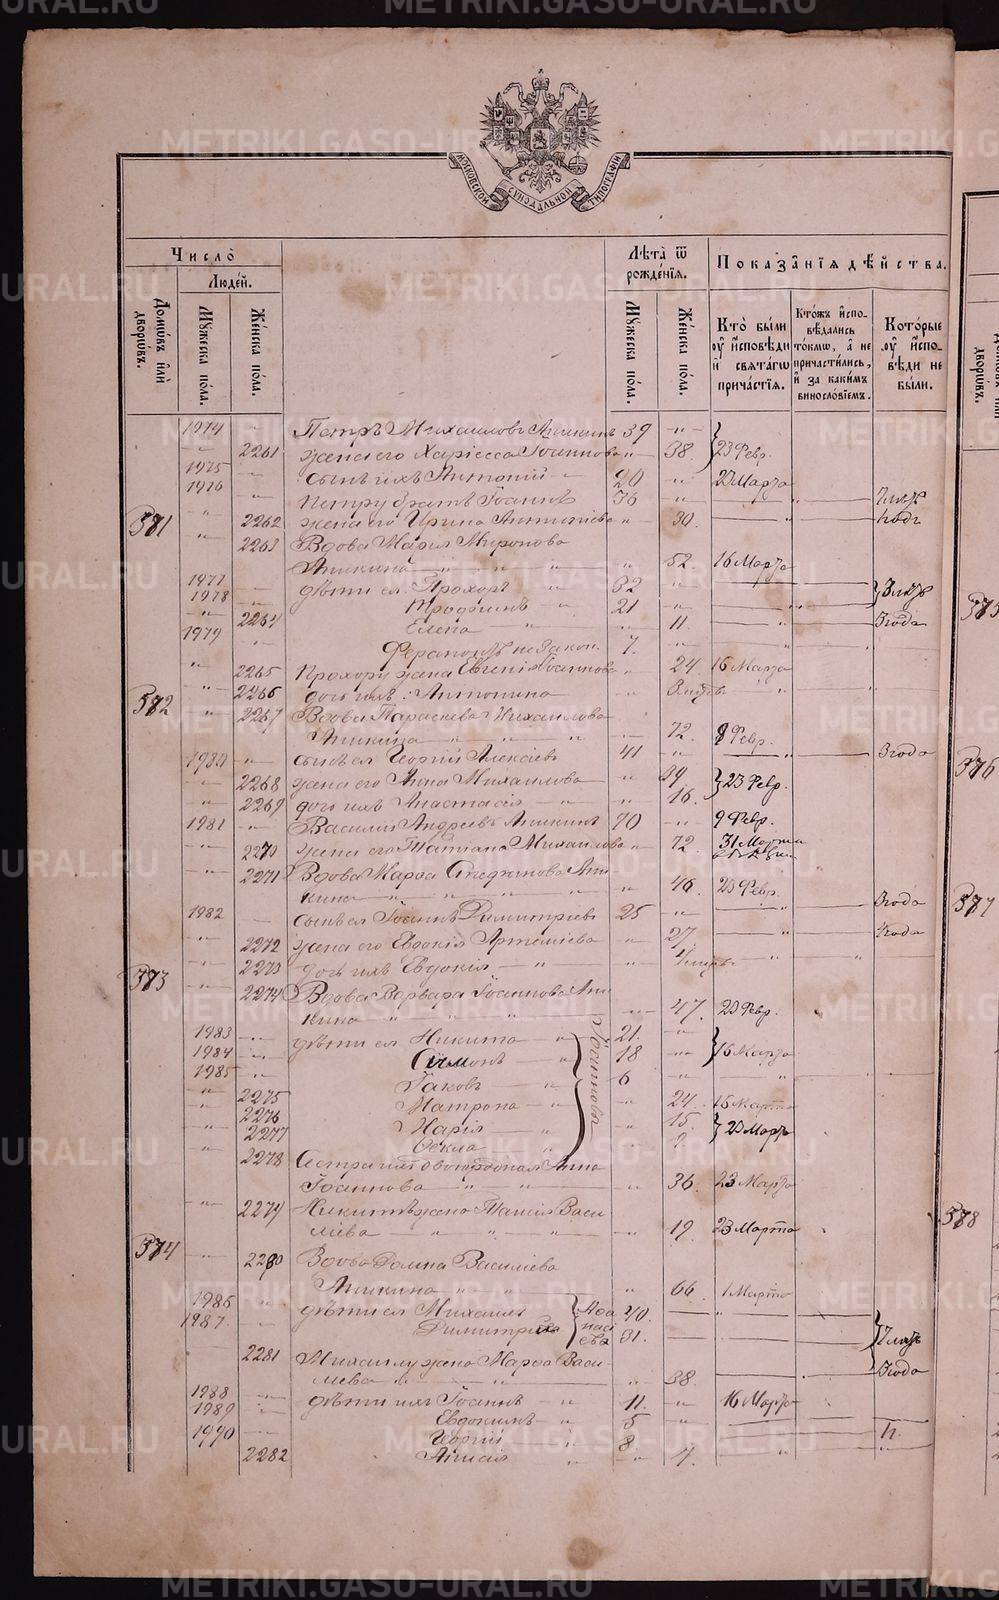 METRIKI.GASO-URAL.RU
МОСКОВСКОЙ СѴНОДАЛЬНОЙ ТИПОГРАФІИ
Число̀
Люде́й.
Домѡ́въ и҆лѝ дворѡ́въ.
Мꙋ́жеска по́ла.
Же́нска по́ла.
Лѣ́та ѿ рожде́нїѧ.
Мꙋ́жеска по́ла.
Же́нска по́ла.
Показа́нїѧ дѣ́йства.
Кто̀ бы́ли оу҆ и҆сповѣ́ди и҆ свѧта́гѡ прича́стїѧ.
Кто́жъ и҆спо-вѣ́дались то́кмѡ, а҆ не причасти́лись, и҆ за каки́мъ винослові́емъ.
Кото́рые оу҆ и҆спо-вѣ́ди не бы́ли.
1974 Петръ Михаиловъ Аникинъ 39
2261 жена его Харіесса Іоаннова 38. 23 Февр.
1975 сынъ ихъ Антоній 20 23 Марта
1976 Петру братъ Іоаннъ
571 2262 жена его Ирина 30.
2263 Вдова Марія Миронова
Аникина 52. 16 Марта
1977 дѣти ея Прохоръ 32
1978 Трофимъ 21
2264 Елена 11. 3 года
1979 Ферапонтъ не закон. 7.
2265 Прохору жена Евгенія Іоаннова 24 16 Марта
2266 дочь ихъ Антонина
572 2267 Вдова Параскева Михаилова
Аникина 72. 8 Февр.
1980 сынъ ея Георгій Алексіевъ 41 3 года
2268 жена его Анна Михаилова 44. 23 Февр.
2269 дочь ихъ Анастасія 16.
1981 Василій Андреевъ Аникинъ 70 9 Февр.
2270 жена его Татіана Михаилова 72 31 Марта
2271 Вдова Марѳа Стефанова Ани
кина 46. 20 Февр.
1982 сынъ ея Іоаннъ Димитріевъ 25 3 года
2272 жена его Евдокія Артеміева 27.
2273 дочь ихъ Евдокія
573 2274 Вдова Варвара Іоаннова Ани
кина 47. 20 Февр.
1983 дѣти ея Никита 21.
1984 Симонъ 18 16 Марта
1985 Іаковъ 6
Іоанновы
2275 Матрона 24. 15 Марта
2276 Марія 15. 20 Марта
2277 Ѳекла
2278 Сестра ихъ двоюродная Анна
Іоаннова 36. 23 Марта
2279 Никитѣ жена Таисія Васи
лiева 19. 23 Марта
574 2280 Вдова Домна Василіева
Аникина 66 1 Марта
1986 дѣти ея Михаилъ 40.
1987. Димитрій 31.
Аѳа насі евы
2281 Михаилу жена Марѳа Васи-
ліева 38. 3 года
1988 дѣти ихъ Іоаннъ 11. 16 Марта
1989 Евдокимъ 5
1990 Георгій 8
2282 Таисія 4.
575
576
577
578